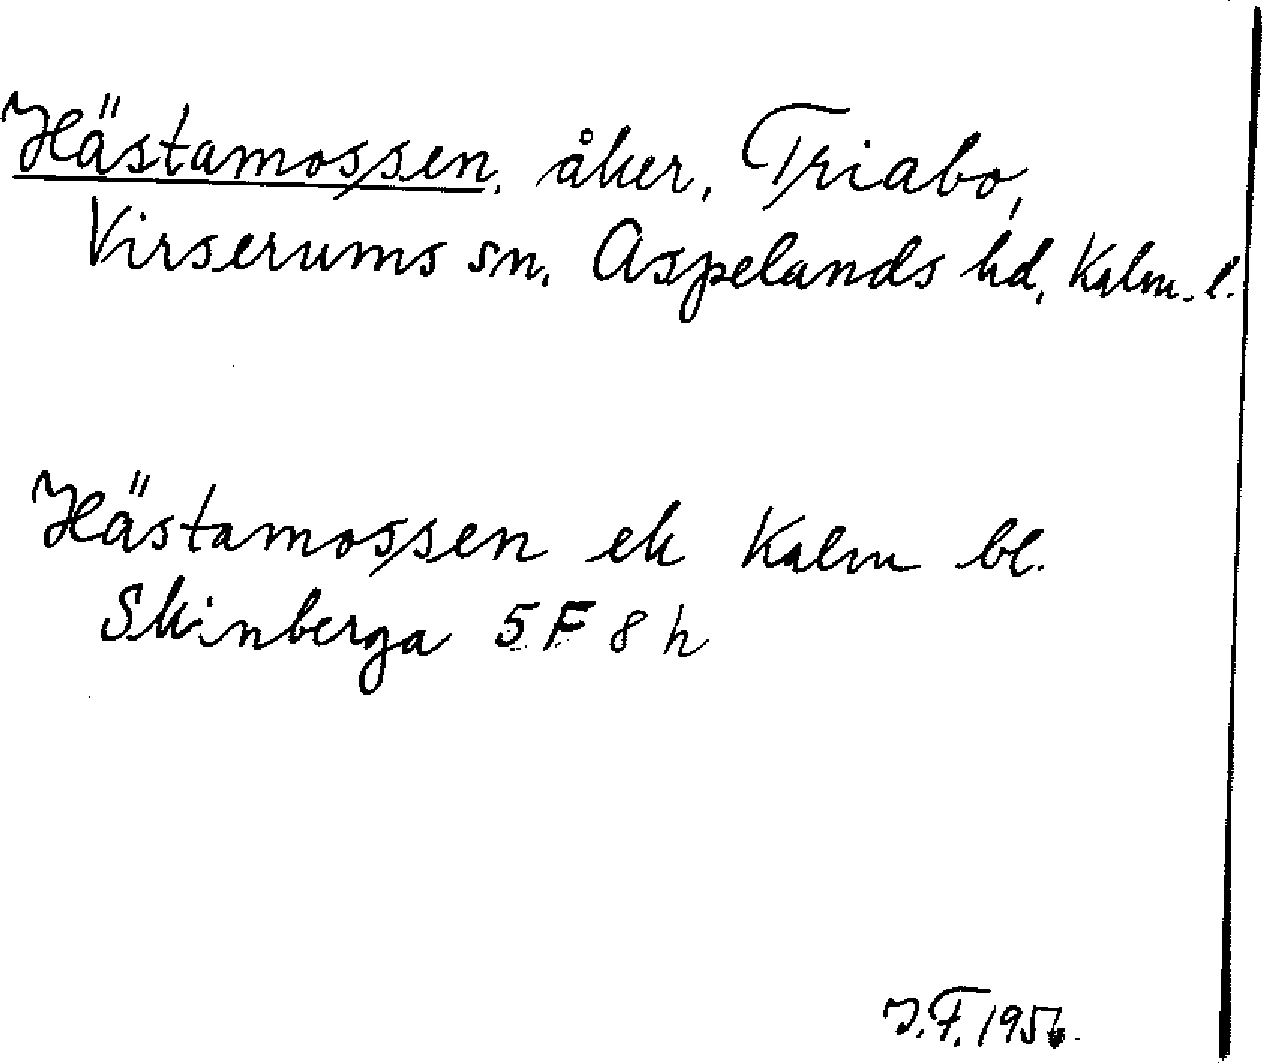 Hästamossen, åker, Triabo,
Virserums sn, Aspelands hd, Kalm. l.
Hästamossen ek Kalm bl.
Skinberga 5F 8h
J.F. 1956.